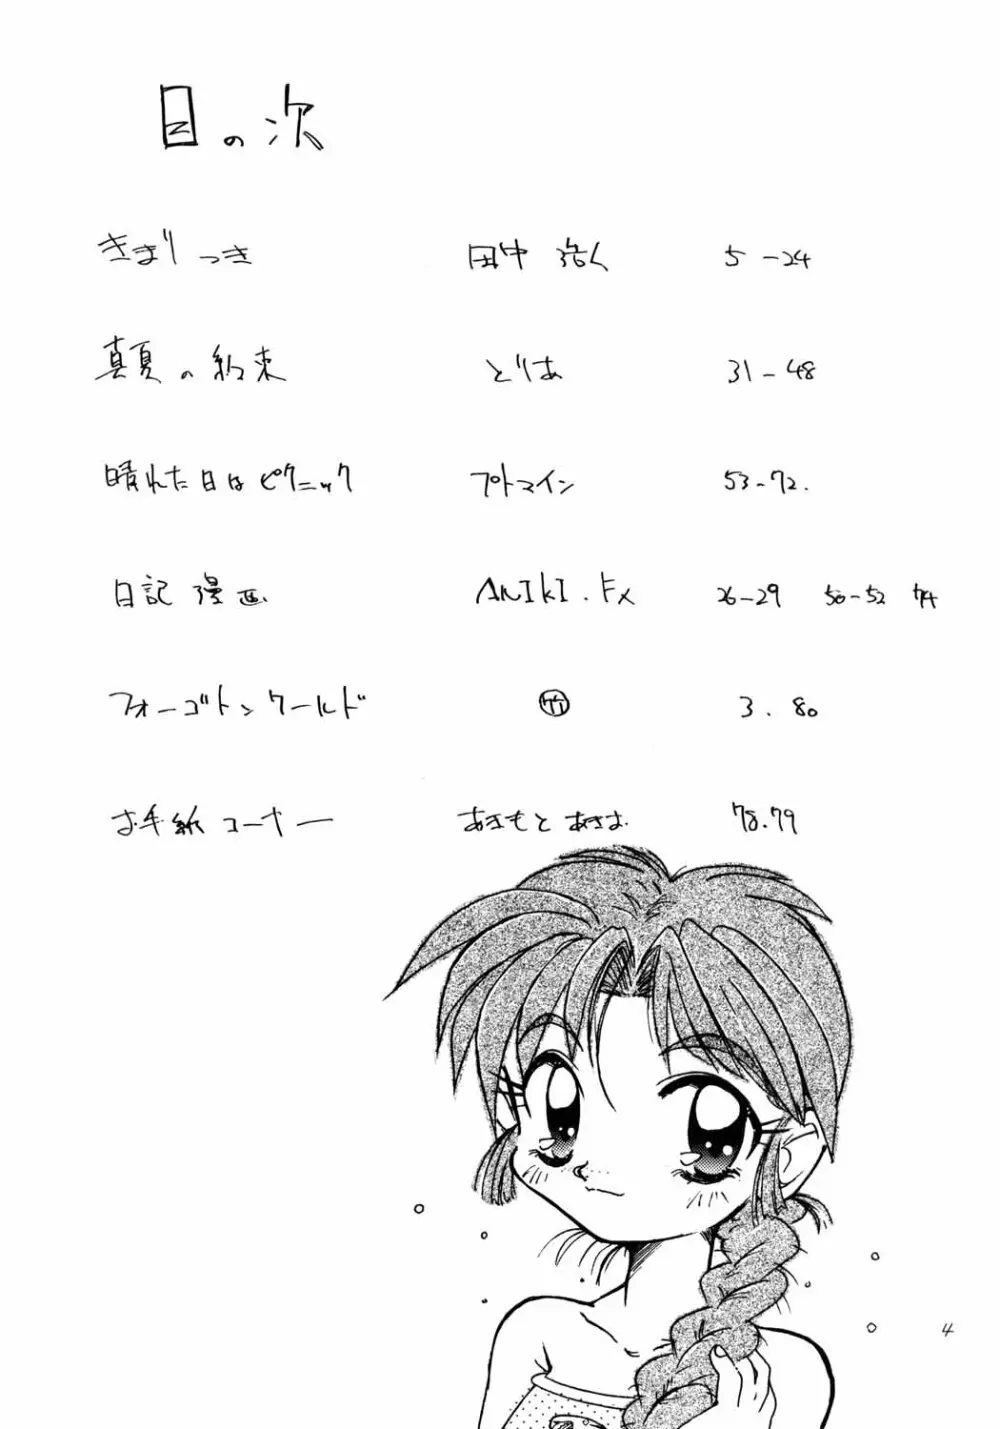 目の次
きまりつき 田中 浩人 5-24
真夏の約束 とりあ 31-48
晴れた日はピクニック プトマイン 53-72.
日記漫画 ANIkI.Fx 26-29 50-52 74
フォーゴトンワールド 竹 3.80
お手紙コーナー あきもとあきお 78.79
4